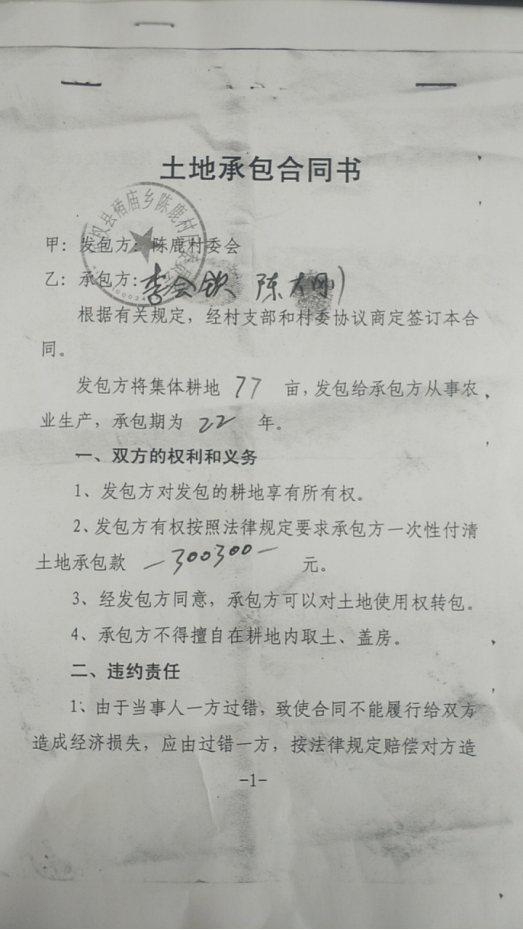 土地承包合同书
甲：发包方：陈鹿村委会
乙：承包方：李会钦 陈大刚
根据有关规定，经村支部和村委协议商定签订本合
同。
发包方将集体耕地 77 亩，发包给承包方从事农
业生产，承包期为 22 年。
一、双方的权利和义务
1、发包方对发包的耕地享有所有权。
2、发包方有权按照法律规定要求承包方一次性付清
土地承包款 —300300— 元。
3、经发包方同意，承包方可以对土地使用权转包。
4、承包方不得擅自在耕地内取土、盖房。
二、违约责任
1、由于当事人一方过错，致使合同不能履行给双方
造成经济损失，应由过错一方，按法律规定赔偿对方造
-1-